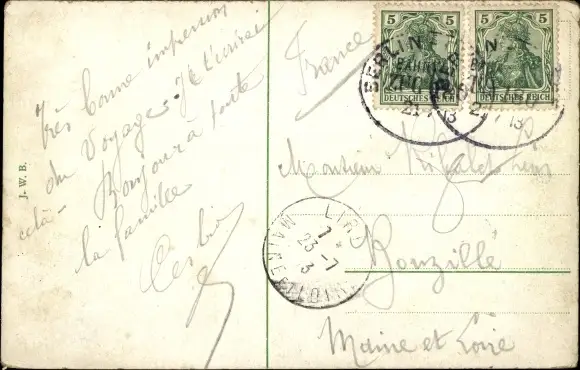 Très bonne impression
du voyage. Je t'écrirai
Bonjour à toute
la famille
J. W. B.
France
5 5
5 5
DEUTSCHES REICH
DEUTSCHES REICH
BERLIN
BAHNP.
ZUG
Monsieur
Bouzillé
Maine et Loire
LIRÉ
7 *
23 - 7
13
MAINE-ET-LOIRE